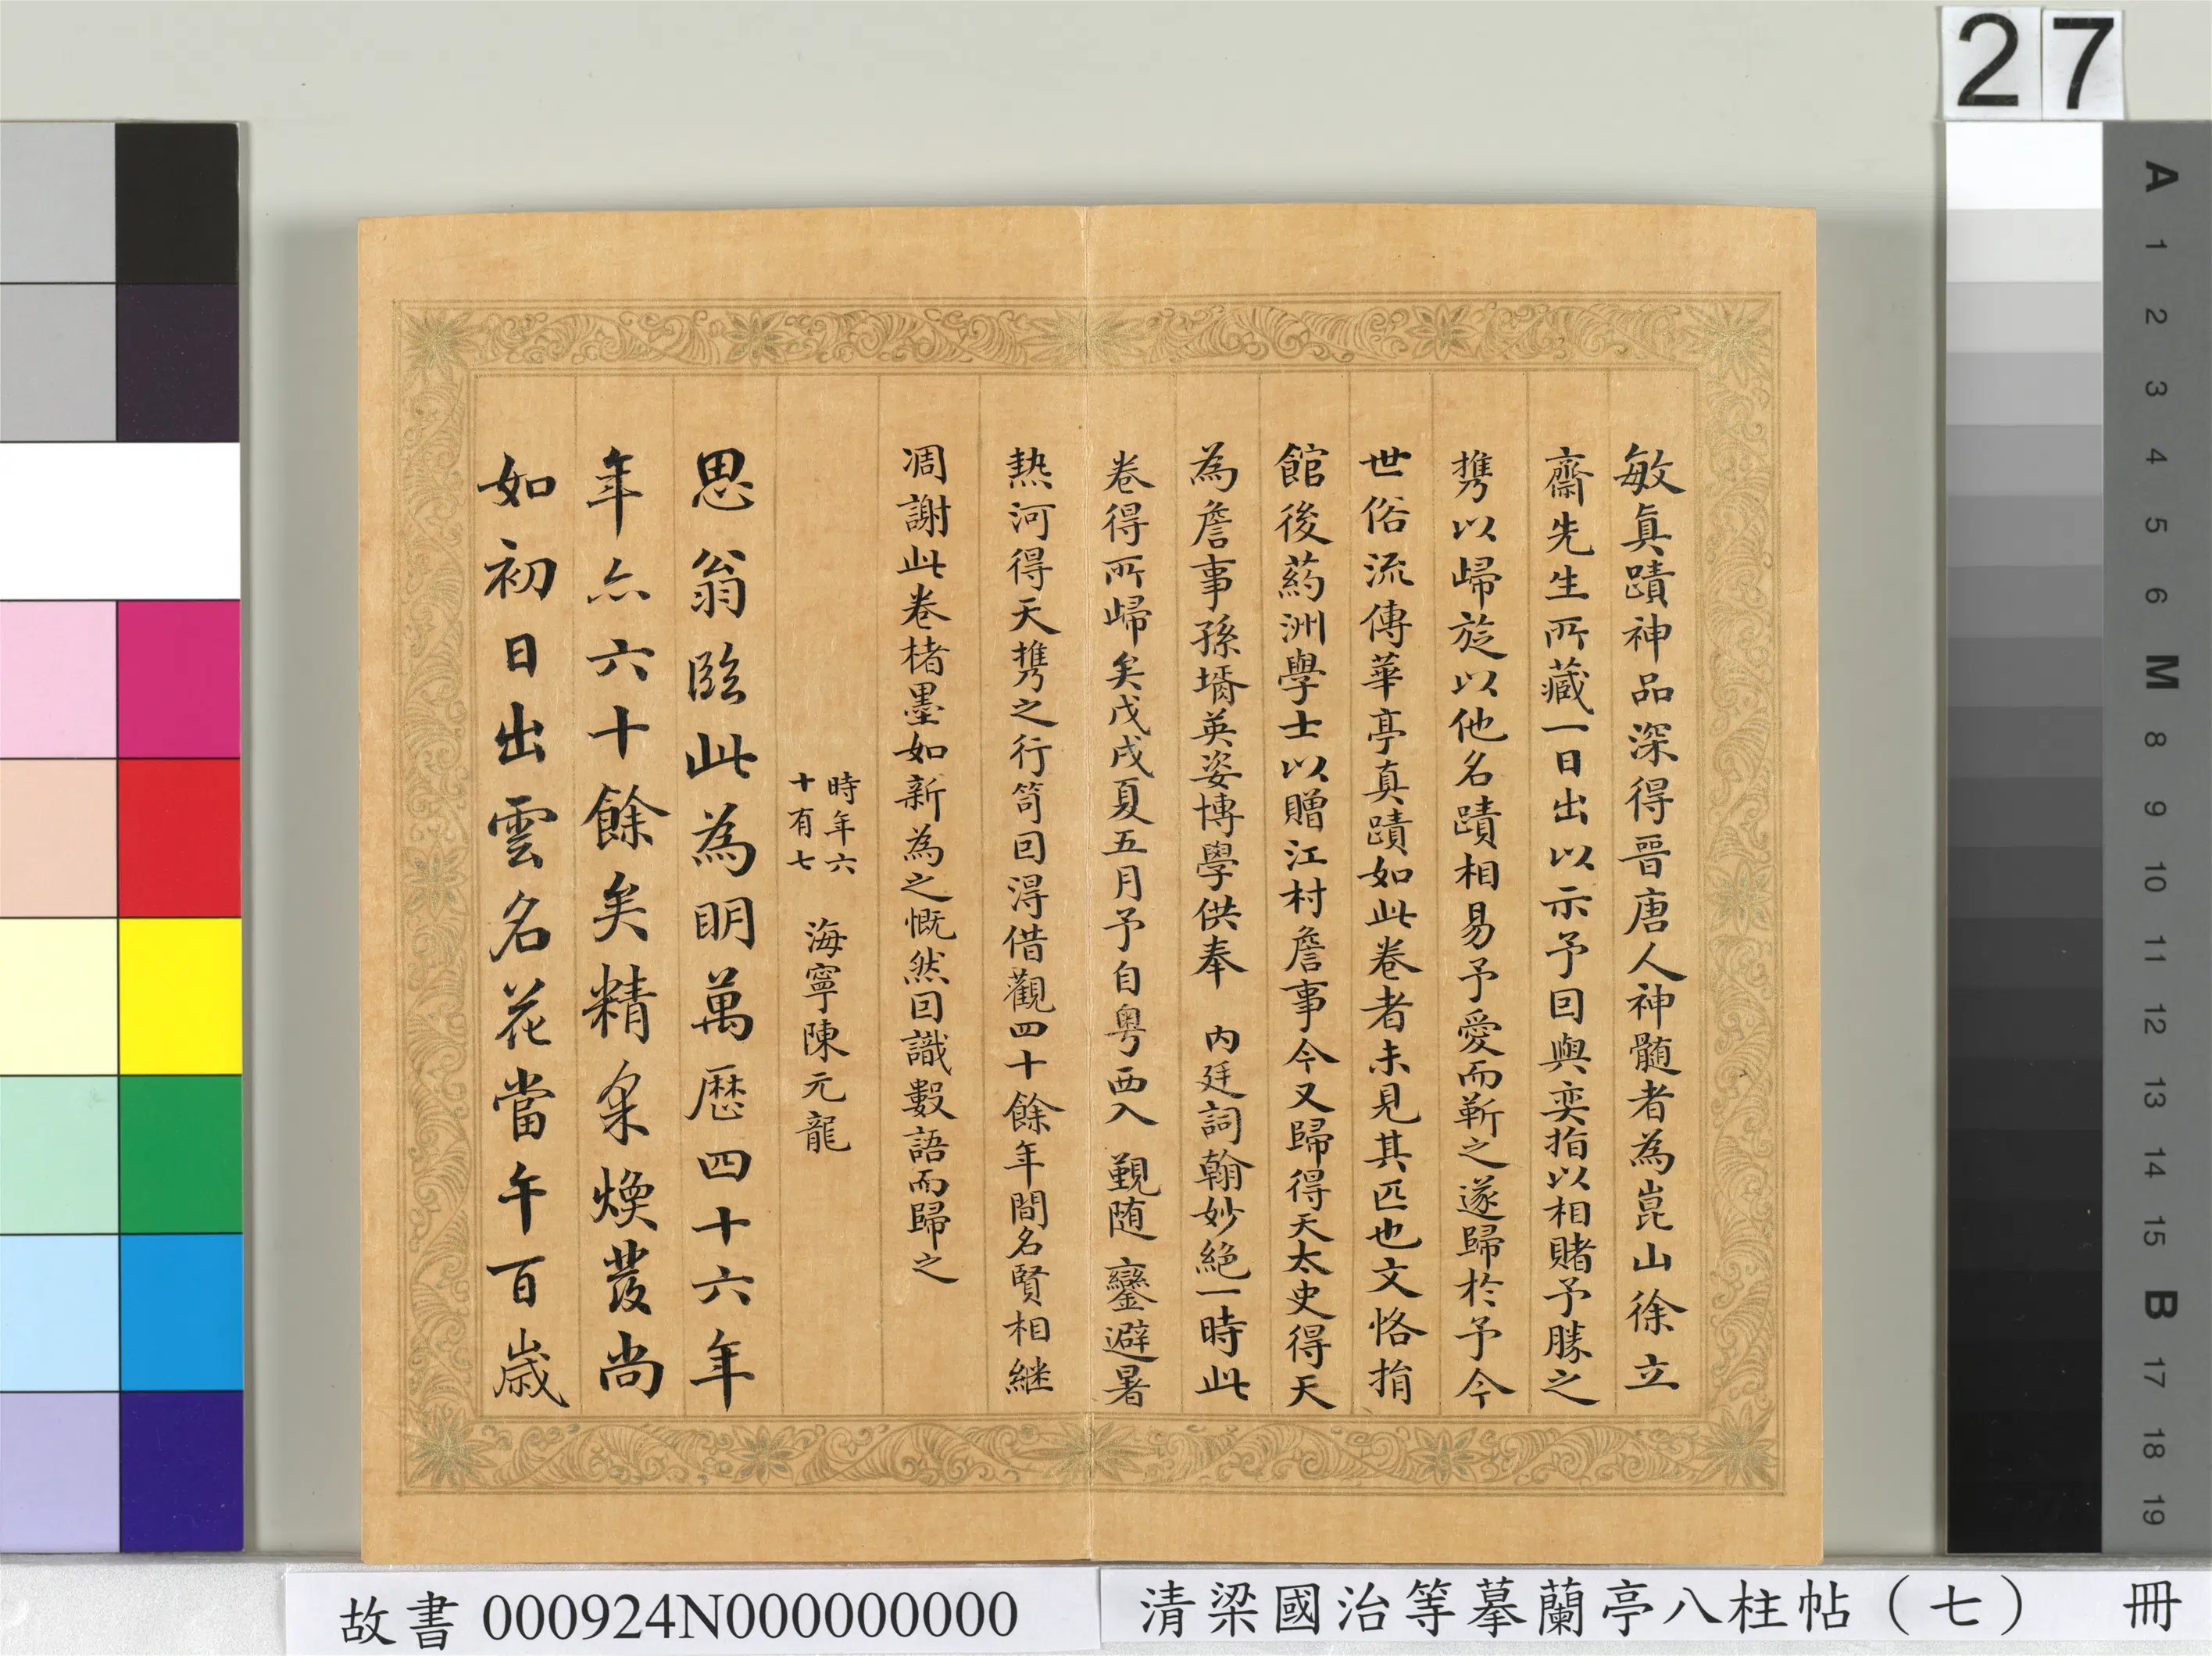 27
敏真蹟神品深得晉唐人神髄者為崑山徐立
齋先生所藏一日出以示予回與奕指以相賭予勝之
携以歸旋以他名蹟相易予愛而靳之遂歸於予今
世俗流傳華亭真蹟如此卷者未見其匹也文恪捐
館後葯洲學士以贈江村詹事今又歸得天太史得天
為詹事孫壻英姿博學供奉 內廷詞翰妙絕一時此
卷得所歸矣戊戌夏五月予自粤西入 觐随 鑾避暑
熱河得天携之行笥回得借觀四十餘年間名賢相継
凋謝此卷楮墨如新為之慨然回識數語而歸之
時年六
十有七 海寧陳元龍
思翁臨此為明萬歷四十六年
年亦六十餘矣精采煥發尚
如初日出雲名花當午百歲
A 1 2 3 4 5 6 M 8 9 10 11 12 13 14 15 B 17 18 19
故書 000924N000000000
清梁國治等摹蘭亭八柱帖（七） 冊